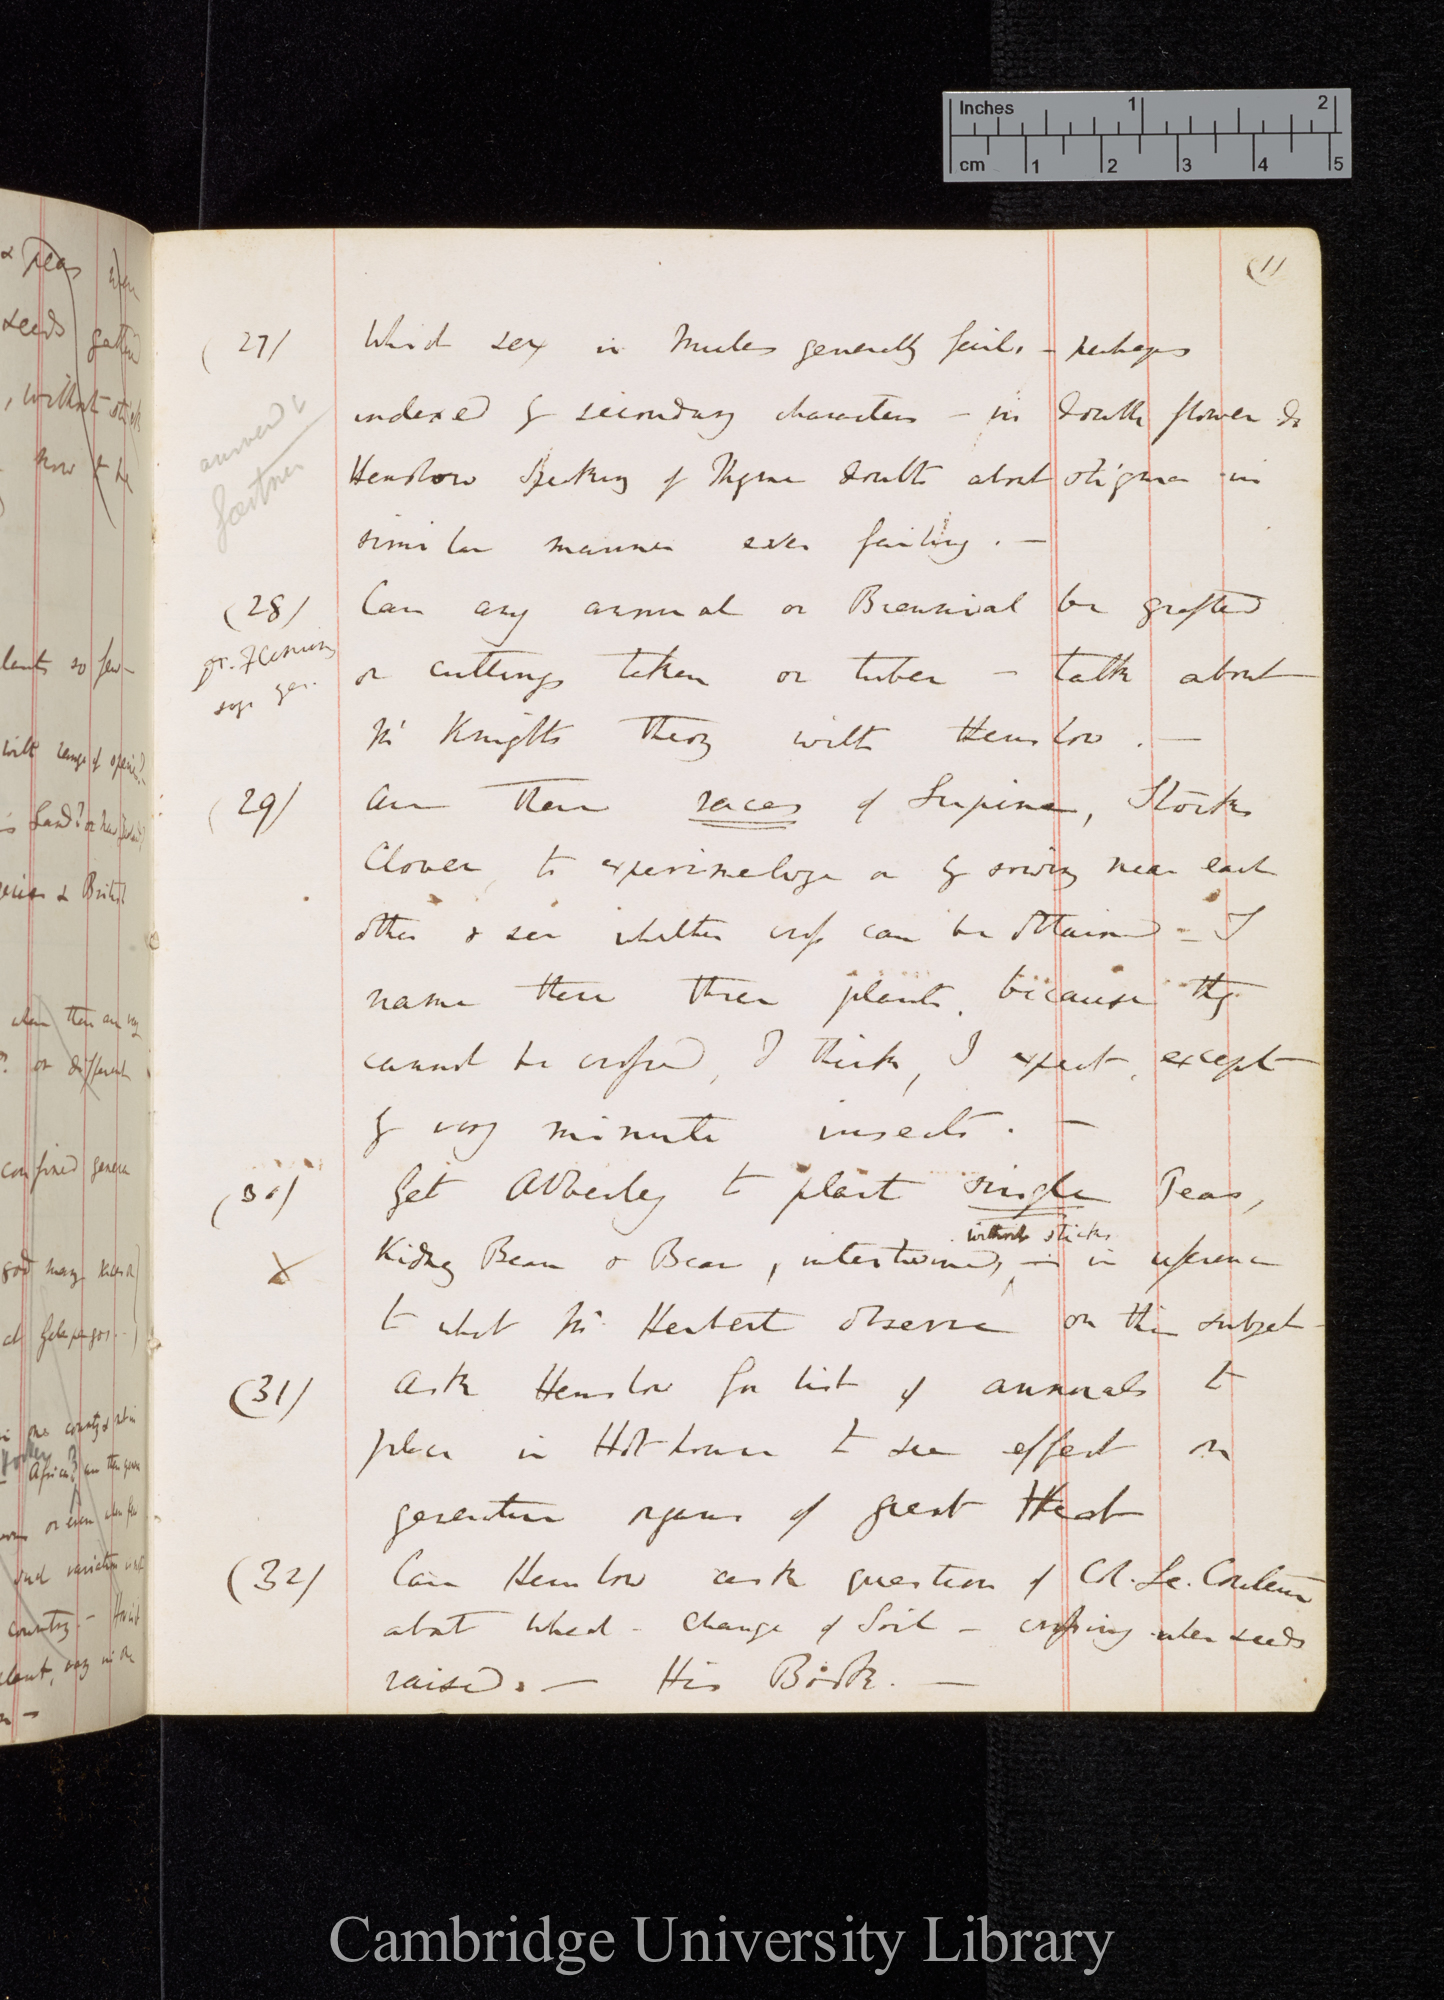 Inches 1 2
cm 1 2 3 4 5
(11
(27/ Which sex in Mules generally fails – perhaps
indexed by secondary characters – in double flower do
answered by
Gærtner
Henslow speaking of Thyme doubts about stigma in
similar manner ever failing. —
(28/ Can any annual or Biennial be grafted
or cuttings taken or tuber – talk about
says yes.
Mr Knights theory with Henslow. —
(29/ Are there races of Lupine, Stocks
Clover, to experimetize on by sowing near each
other & see whether cross can be obtained – I
name these three plants, because they
cannot be crossed, I think, I expect, except
by very minute insects. —
(30/ Get Abberley to plant single Peas,
without sticks
X Kidney Bean & Bean, intertwined, – in reference
to what Mr Herbert observes on this subject
(31/ Ask Henslow for list of annuals to
place in Hot house to see effect on
generative organs of great Heat
(32/ Can Henslow ask question of Col. Le. Couteur
about Wheat – change of Soil – crossing when seeds
raised. — His Book. —
& Peas when
seeds gathered
, without stick
how to be
plants so few –
with range of species?
species & British
when there are very
? or different
confined genera
at Galapagos
country. –
Cambridge University Library